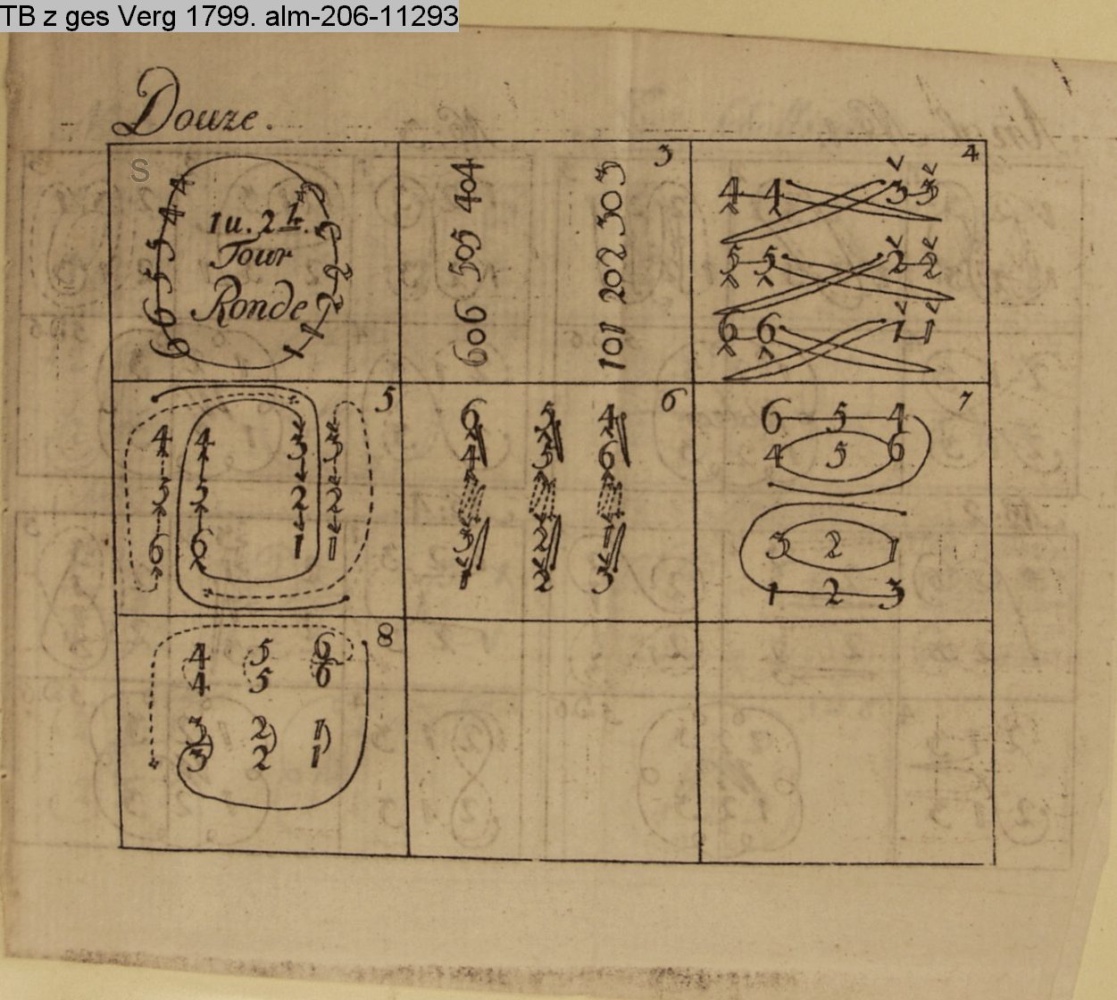 TB z ges Verg 1799. alm-206-11293
Douze.
S
1 u. 2
Tour
Ronde
4 3
4 3
5 2
5 2
6 1
6 1
3
404 303
505 202
606 101
4
4 4 3 3
5 5 2 2
6 6 1 1
5
4 4 3 3
5 5 2 2
6 6 1 1
6
6 5 4
4 5 6
3 2 1
1 2 3
7
6 5 4
4 5 6
3 2 1
1 2 3
8
4 5 6
4 5 6
3 2 1
3 2 1